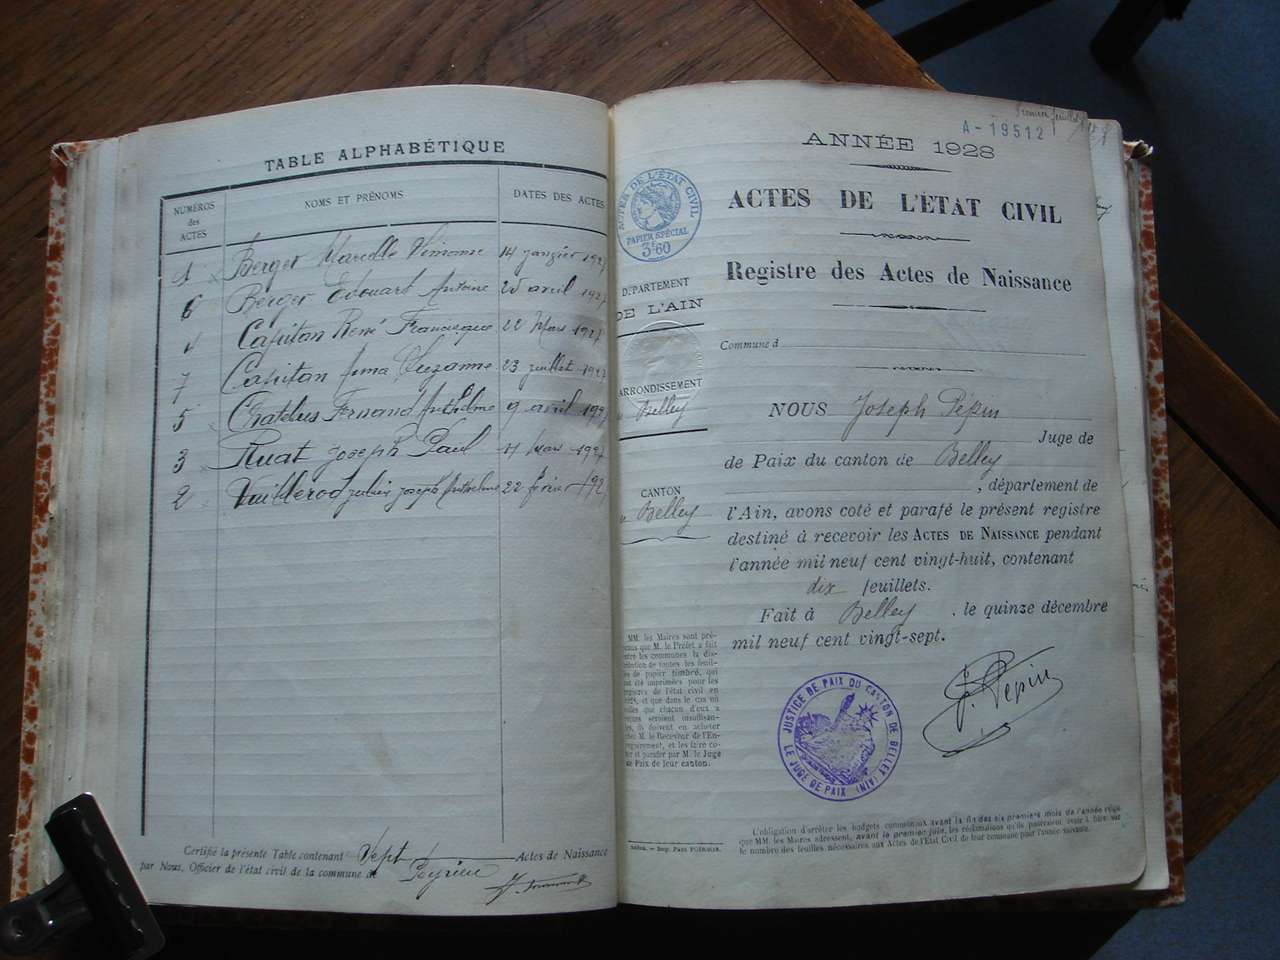 TABLE ALPHABÉTIQUE
NUMÉROS des ACTES NOMS ET PRÉNOMS DATES DES ACTES
1 Berger Marcelle Simone 14 janvier 1927
6 Berger Edouard Antoine 25 avril 1927
4 Capitan René Francisque 22 Mars 1927
7 Capitan Anna Suzanne 23 juillet 1927
5 Chatelus Fernand Anthelme 9 avril 1927
3 Ruat Joseph Paul 11 Mars 1927
2 Vuillerod Julien Joseph Anthelme 22 février 192
Certifié la présente Table contenant Sept Actes de Naissance
par Nous, Officier de l'état civil de la commune de Peyrieu
Premier feuillet
A-19512
ANNÉE 1928
ACTES DE L'ÉTAT CIVIL
Registre des Actes de Naissance
ACTES DE L'ÉTAT CIVIL
PAPIER SPÉCIAL
3F60
DÉPARTEMENT
DE L'AIN
ARRONDISSEMENT
Belley
CANTON
Belley
Commune d
NOUS Joseph Pépin
Juge de
de Paix du canton de Belley
, département de
l'Ain, avons coté et parafé le présent registre
destiné à recevoir les ACTES DE NAISSANCE pendant
l'année mil neuf cent vingt-huit, contenant
dix feuillets.
Fait à Belley, le quinze décembre
mil neuf cent vingt-sept.
J. Pépin
JUSTICE DE PAIX DU CANTON DE BELLEY (AIN)
LE JUGE DE PAIX
MM. les Maires sont pré-
venus que M. le Préfet a fait
entre les communes la dis-
tribution de toutes les feuil-
les de papier timbré, qui
ont été imprimées pour les
registres de l'état civil en
1928, et que dans le cas où
celles que chacun d'eux a
reçues seraient insuffisan-
tes, ils doivent en acheter
chez M. le Receveur de l'En-
registrement, et les faire co-
ter et parafer par M. le Juge
de Paix de leur canton.
L'obligation d'arrêter les budgets communaux avant la fin des six premiers mois de l'année exige
que MM. les Maires adressent, avant le premier juin, les réclamations qu'ils pourraient avoir à faire sur
le nombre des feuilles nécessaires aux Actes de l'État Civil de leur commune pour l'année suivante.